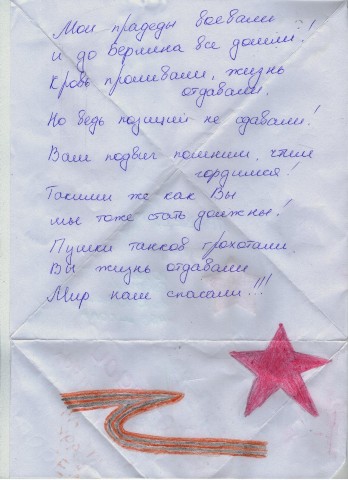 Мои прадеды воевали
и до Берлина все дошли!
Кровь проливали, жизнь
отдавали.
Но ведь позиций не сдавали!
Ваш подвиг помним, чтим
гордимся!
Такими же как Вы
мы тоже стать должны!
Пушки танков грохотали,
Вы жизнь отдавали
Мир нам спасали!!!